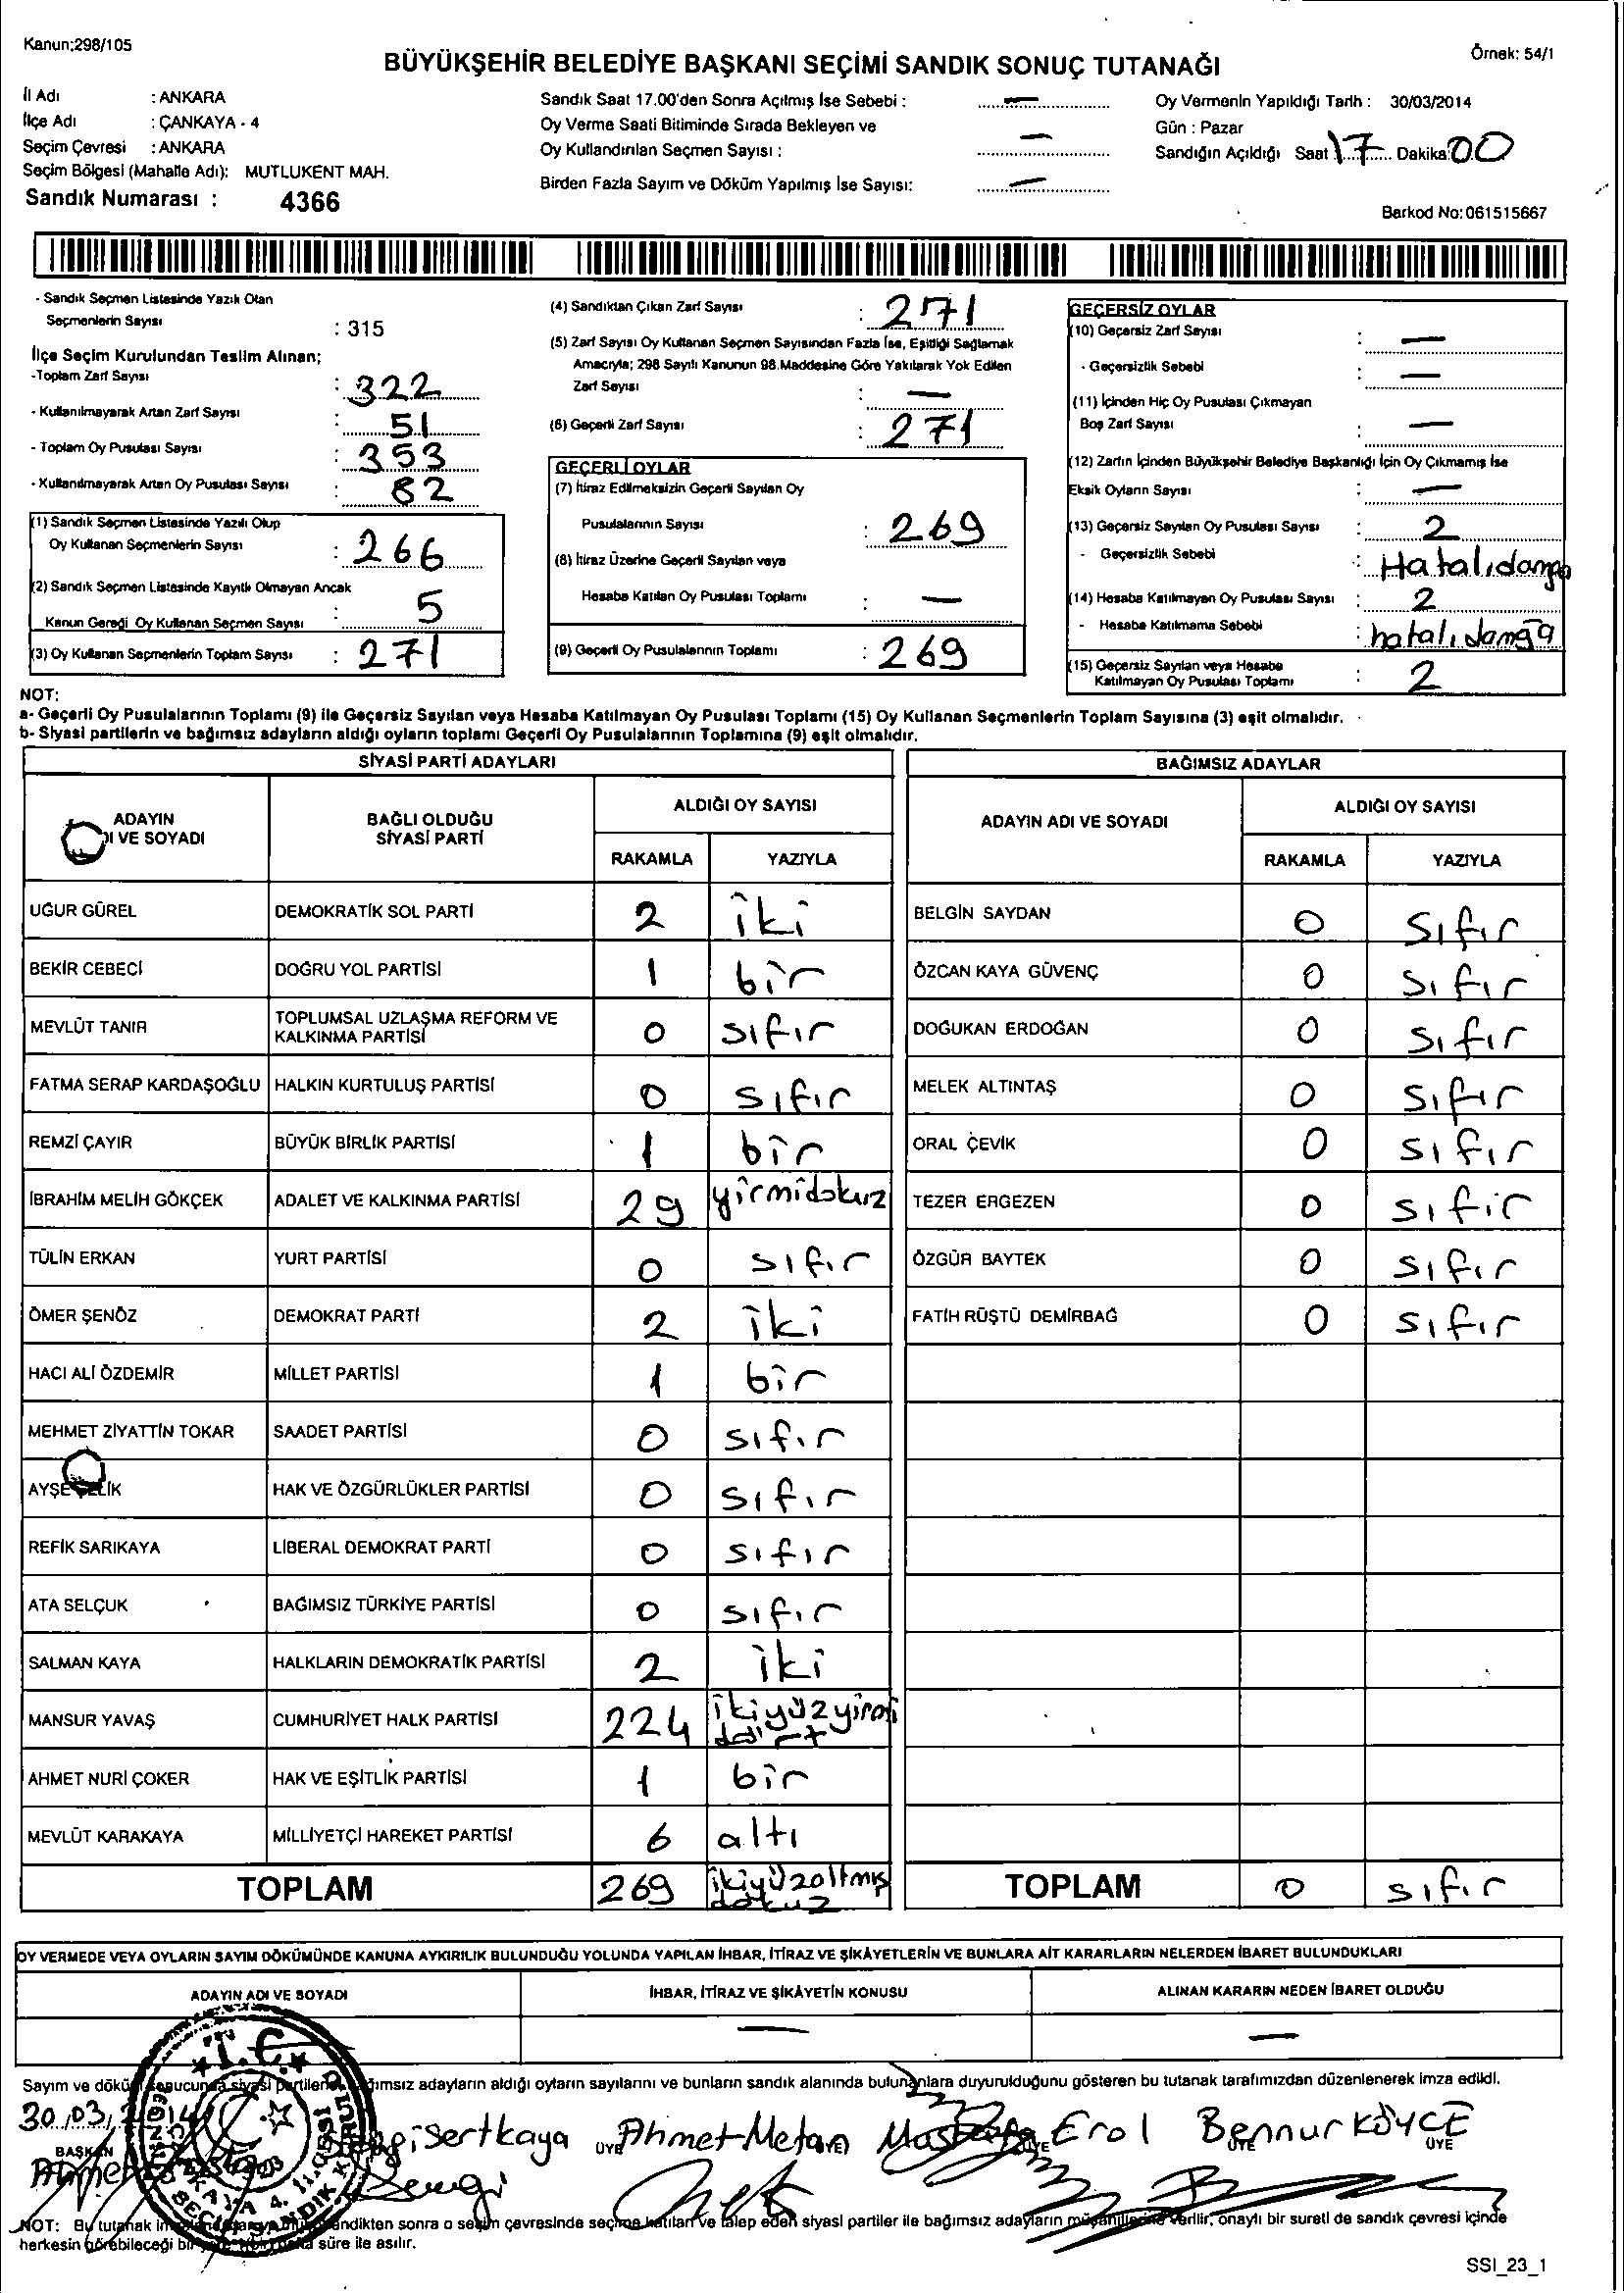 Kanun;298/105
Örnek: 54/1
BÜYÜKŞEHİR BELEDİYE BAŞKANI SEÇİMİ SANDIK SONUÇ TUTANAĞI
İl Adı : ANKARA
İlçe Adı : ÇANKAYA - 4
Seçim Çevresi : ANKARA
Seçim Bölgesi (Mahalle Adı): MUTLUKENT MAH.
Sandık Numarası : 4366
Sandık Saat 17.00'den Sonra Açılmış İse Sebebi : —
Oy Verme Saati Bitiminde Sırada Bekleyen ve
Oy Kullandırılan Seçmen Sayısı : —
Birden Fazla Sayım ve Döküm Yapılmış İse Sayısı: —
Oy Vermenin Yapıldığı Tarih : 30/03/2014
Gün : Pazar
Sandığın Açıldığı Saat 17 Dakika 00
Barkod No:061515667
- Sandık Seçmen Listesinde Yazılı Olan
Seçmenlerin Sayısı : 315
İlçe Seçim Kurulundan Teslim Alınan;
-Toplam Zarf Sayısı : 322
- Kullanılmayarak Artan Zarf Sayısı : 51
- Toplam Oy Pusulası Sayısı : 353
- Kullanılmayarak Artan Oy Pusulası Sayısı : 82
(1) Sandık Seçmen Listesinde Yazılı Olup
Oy Kullanan Seçmenlerin Sayısı : 266
(2) Sandık Seçmen Listesinde Kayıtlı Olmayan Ancak
Kanun Gereği Oy Kullanan Seçmen Sayısı : 5
(3) Oy Kullanan Seçmenlerin Toplam Sayısı : 271
(4) Sandıktan Çıkan Zarf Sayısı : 271
(5) Zarf Sayısı Oy Kullanan Seçmen Sayısından Fazla İse, Eşitliği Sağlamak
Amacıyla; 298 Sayılı Kanunun 98.Maddesine Göre Yakılarak Yok Edilen
Zarf Sayısı : —
(6) Geçerli Zarf Sayısı : 271
GEÇERLİ OYLAR
(7) İtiraz Edilmeksizin Geçerli Sayılan Oy
Pusulalarının Sayısı : 269
(8) İtiraz Üzerine Geçerli Sayılan veya
Hesaba Katılan Oy Pusulası Toplamı : —
(9) Geçerli Oy Pusulalarının Toplamı : 269
GEÇERSİZ OYLAR
(10) Geçersiz Zarf Sayısı : —
- Geçersizlik Sebebi : —
(11) İçinden Hiç Oy Pusulası Çıkmayan
Boş Zarf Sayısı : —
(12) Zarfın İçinden Büyükşehir Belediye Başkanlığı İçin Oy Çıkmamış İse
Eksik Oyların Sayısı : —
(13) Geçersiz Sayılan Oy Pusulası Sayısı : 2
- Geçersizlik Sebebi : Hatalı damga
(14) Hesaba Katılmayan Oy Pusulası Sayısı : 2
- Hesaba Katılmama Sebebi : hatalı damga
(15) Geçersiz Sayılan veya Hesaba
Katılmayan Oy Pusulası Toplamı : 2
NOT:
a- Geçerli Oy Pusulalarının Toplamı (9) ile Geçersiz Sayılan veya Hesaba Katılmayan Oy Pusulası Toplamı (15) Oy Kullanan Seçmenlerin Toplam Sayısına (3) eşit olmalıdır.
b- Siyasi partilerin ve bağımsız adayların aldığı oyların toplamı Geçerli Oy Pusulalarının Toplamına (9) eşit olmalıdır.
SİYASİ PARTİ ADAYLARI
ADAYIN
VE SOYADI
BAĞLI OLDUĞU
SİYASİ PARTİ
ALDIĞI OY SAYISI
RAKAMLA YAZIYLA
UĞUR GÜREL DEMOKRATİK SOL PARTİ 2 iki
BEKİR CEBECİ DOĞRU YOL PARTİSİ 1 bir
MEVLÜT TANIR TOPLUMSAL UZLAŞMA REFORM VE KALKINMA PARTİSİ 0 sıfır
FATMA SERAP KARDAŞOĞLU HALKIN KURTULUŞ PARTİSİ 0 sıfır
REMZİ ÇAYIR BÜYÜK BİRLİK PARTİSİ 1 bir
İBRAHİM MELİH GÖKÇEK ADALET VE KALKINMA PARTİSİ 29 yirmidokuz
TÜLİN ERKAN YURT PARTİSİ 0 sıfır
ÖMER ŞENÖZ DEMOKRAT PARTİ 2 iki
HACI ALİ ÖZDEMİR MİLLET PARTİSİ 1 bir
MEHMET ZİYATTİN TOKAR SAADET PARTİSİ 0 sıfır
AYŞE ÇELİK HAK VE ÖZGÜRLÜKLER PARTİSİ 0 sıfır
REFİK SARIKAYA LİBERAL DEMOKRAT PARTİ 0 sıfır
ATA SELÇUK BAĞIMSIZ TÜRKİYE PARTİSİ 0 sıfır
SALMAN KAYA HALKLARIN DEMOKRATİK PARTİSİ 2 iki
MANSUR YAVAŞ CUMHURİYET HALK PARTİSİ 224 ikiyüzyirmi dört
AHMET NURİ ÇOKER HAK VE EŞİTLİK PARTİSİ 1 bir
MEVLÜT KARAKAYA MİLLİYETÇİ HAREKET PARTİSİ 6 altı
TOPLAM 269 ikiyüzaltmış dokuz
BAĞIMSIZ ADAYLAR
ADAYIN ADI VE SOYADI
ALDIĞI OY SAYISI
RAKAMLA YAZIYLA
BELGİN SAYDAN 0 sıfır
ÖZCAN KAYA GÜVENÇ 0 sıfır
DOĞUKAN ERDOĞAN 0 sıfır
MELEK ALTINTAŞ 0 sıfır
ORAL ÇEVİK 0 sıfır
TEZER ERGEZEN 0 sıfır
ÖZGÜR BAYTEK 0 sıfır
FATİH RÜŞTÜ DEMİRBAĞ 0 sıfır
TOPLAM 0 sıfır
OY VERMEDE VEYA OYLARIN SAYIM DÖKÜMÜNDE KANUNA AYKIRILIK BULUNDUĞU YOLUNDA YAPILAN İHBAR, İTİRAZ VE ŞİKÂYETLERİN VE BUNLARA AİT KARARLARIN NELERDEN İBARET BULUNDUKLARI
ADAYIN ADI VE SOYADI
İHBAR, İTİRAZ VE ŞİKÂYETİN KONUSU
ALINAN KARARIN NEDEN İBARET OLDUĞU
— —
Sayım ve döküm sonucunda siyasi partilerin bağımsız adayların aldığı oyların sayılarını ve bunların sandık alanında bulunanlara duyurulduğunu gösteren bu tutanak tarafımızdan düzenlenerek imza edildi.
30.03.2014
T.C.
BAŞKAN
Ahmet
Sertkaya ÜYE Ahmet Metan ÜYE Mustafa Erol ÜYE Bennur KÖYCE ÜYE
Sevgi
NOT: Bu tutanak sonra o seçim çevresinde seçime katılan ve talep eden siyasi partiler ile bağımsız adayların müşahitlerine verilir, onaylı bir sureti de sandık çevresi içinde
herkesin görebileceği bir süre ile asılır.
SSI_23_1